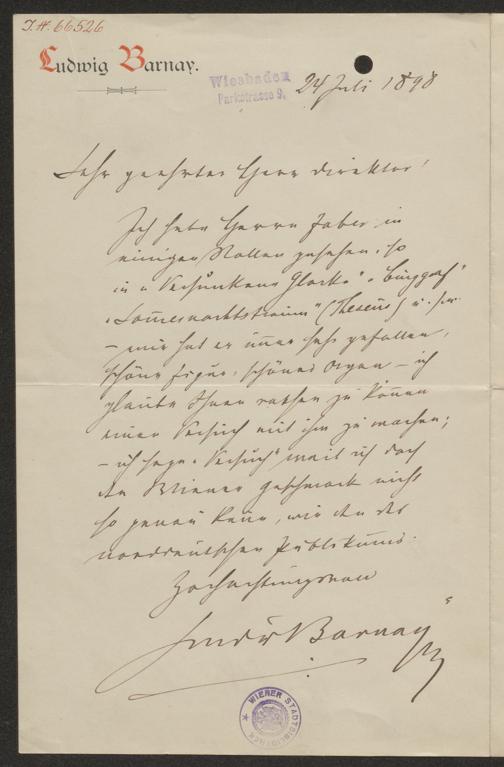 J.N. 66526
Ludwig Barnay.
Wiesbaden
Parkstrasse 9.
24 Juli 1898
Sehr geehrter Herr Direktor!
Ich habe Herrn Faber in
einigen Rollen gesehen, so
in „Versunkene Glocke" „Burggraf"
„Som̄ernachtstraum" (Theseus) u. s. w.
– mir hat er im̄er sehr gefallen,
schöne Figur, schönes Organ – ich
glaube Ihnen rathen zu kön̄en
einen Versuch mit ihm zu machen;
– ich sage „Versuch" weil ich doch
den Wiener Geschmack nicht
so genau ken̄e, wie den des
norddeutschen Publikums.
Hochachtungsvoll
Ludwig Barnay
WIENER STADTBIBLIOTHEK